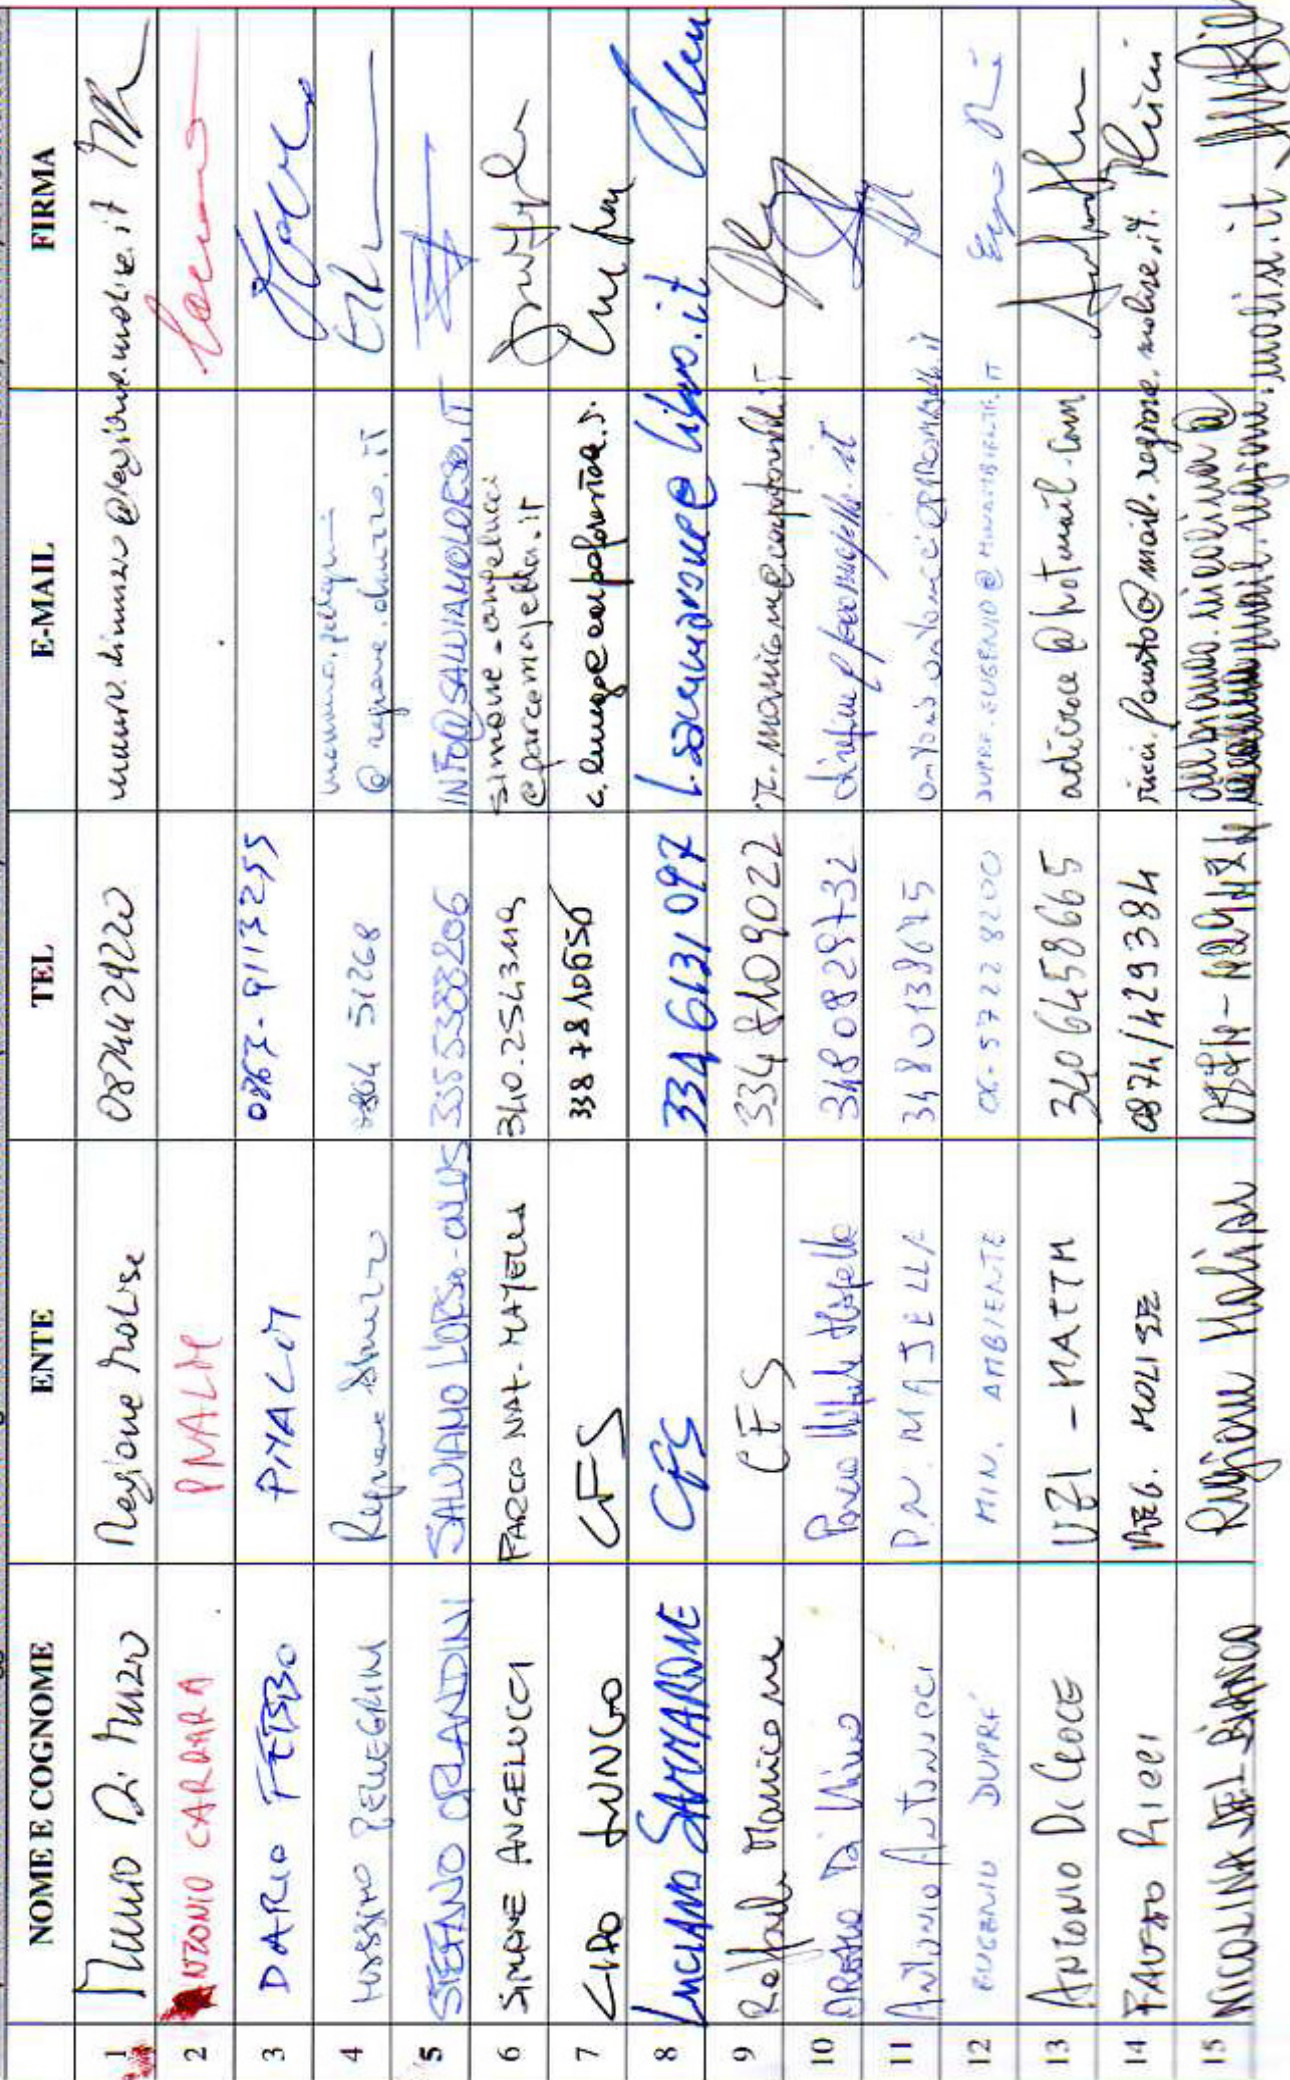 NOME E COGNOME ENTE TEL E-MAIL FIRMA
1 Mauro Di Muzio Regione Molise 0874429220
2 ANTONIO CARRARA PNALM
3 DARIO FEBBO PNALM 0863-9113255
4 MASSIMO PELLEGRINI Regione Abruzzo massimo.pellegrini
@regione.abruzzo.it
5 STEFANO ORLANDINI SALVIAMO L'ORSO-ONLUS INFO@SALVIAMOLORSO.IT
6 SIMONE ANGELUCCI PARCO NAT. MAJELLA 340.2543119 simone.angelucci
@parcomajella.it
7 CIRO LUNGO CFS 338 7810650
8 LUCIANO SAMMARONE CFS 334 6131097 l.sammarone@libero.it
9 Raffaela Manicone CFS 334 8109022
10 Di Nino Parco 3480829732
11 Antonio Antonucci P.N. MAJELLA antonio.antonucci@PARCOMAJELLA.it
12 EUGENIO DUPRE' MIN. AMBIENTE 06-57228200 DUPRE.EUGENIO@MINAMBIENTE.IT
13 ANTONIO DI CROCE UZI - MATTM 3406458665 adicroce@hotmail.com
14 FAUSTO RICCI REG. MOLISE 0874/429384 ricci.fausto@mail.regione.molise.it Ricci
15 NICOLINA DEL BIANCO Regione Molise delbianco.nicolina@
mail.regione.molise.it